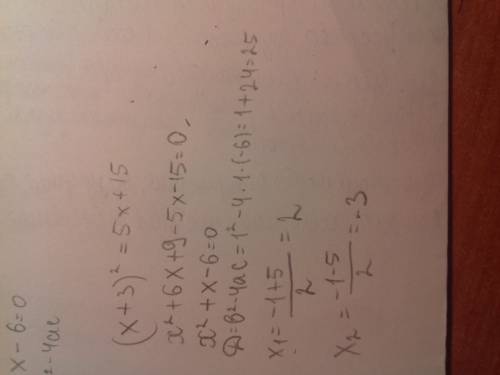 x - 6 = 0
2 - 4ac
(x + 3)² = 5x + 15
x² + 6x + 9 - 5x - 15 = 0,
x² + x - 6 = 0
D = b² - 4ac = 1² - 4 · 1 · (-6) = 1 + 24 = 25
x₁ = (-1 + 5)/2 = 2
x₂ = (-1 - 5)/2 = -3